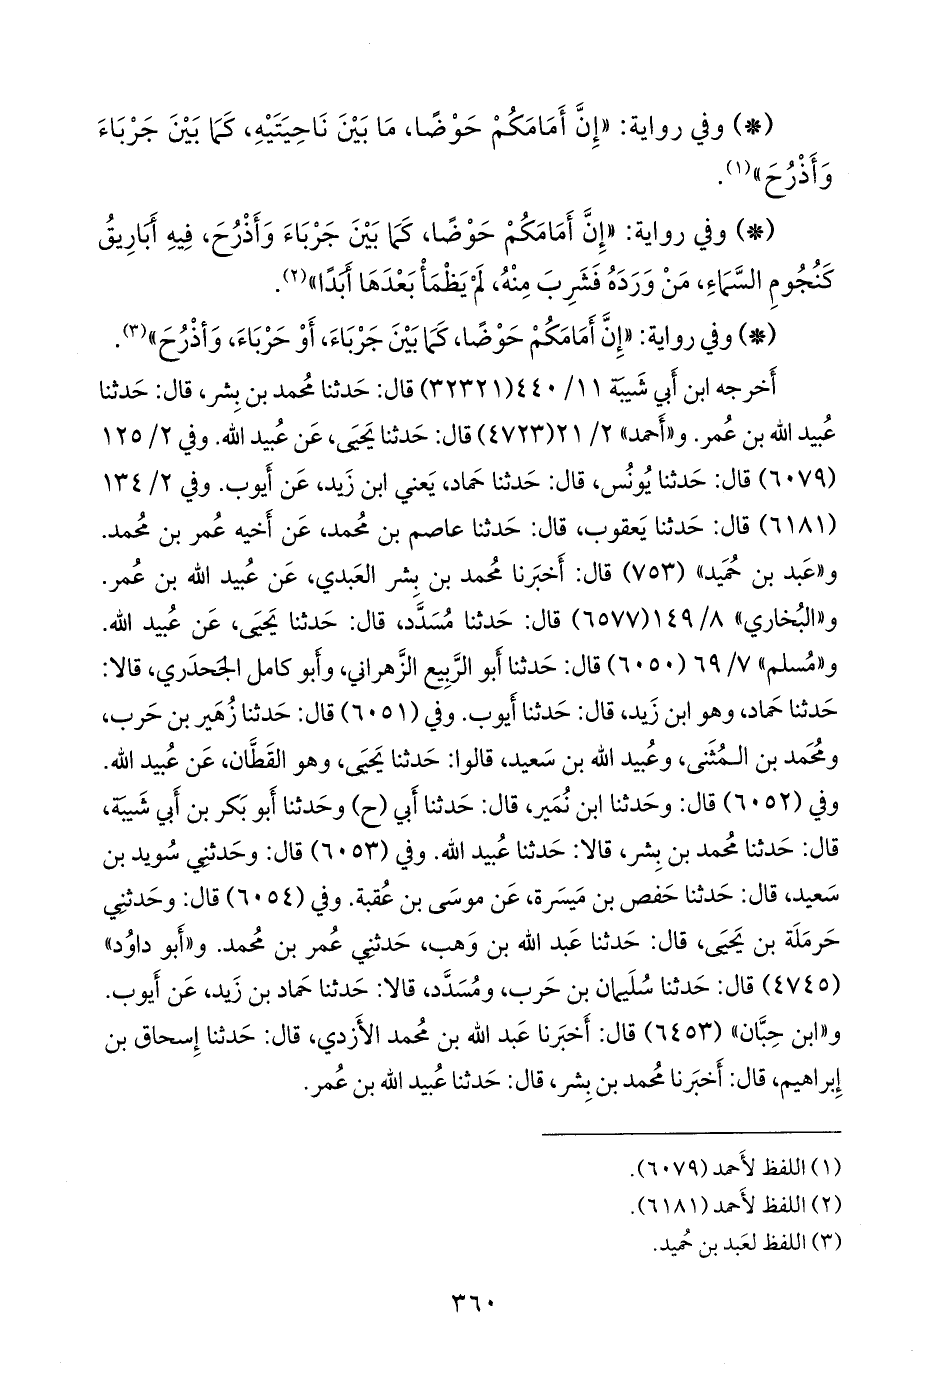 (*) وفي رواية: «إِنَّ أَمَامَكُمْ حَوْضًا، مَا بَيْنَ نَاحِيَتَيْهِ، كَمَا بَيْنَ جَرْبَاءَ
وَأَذْرُحَ»(١).
(*) وفي رواية: «إِنَّ أَمَامَكُمْ حَوْضًا، كَمَا بَيْنَ جَرْبَاءَ وَأَذْرُحَ، فِيهِ أَبَارِيقُ
كَنُجُومِ السَّمَاءِ، مَنْ وَرَدَهُ فَشَرِبَ مِنْهُ، لَمْ يَظْمَأْ بَعْدَهَا أَبَدًا»(٢).
(*) وفي رواية: «إِنَّ أَمَامَكُمْ حَوْضًا، كَمَا بَيْنَ جَرْبَاءَ، أَوْ حَرْبَاءَ، وَأَذْرُحَ»(٣).
أَخرجه ابن أَبي شَيبَة ١١/ ٤٤٠(٣٢٣٢١) قال: حَدثنا مُحمد بن بِشر، قال: حَدثنا
عُبيد الله بن عُمر. و«أَحمد» ٢/ ٢١(٤٧٢٣) قال: حَدثنا يَحيَى، عَن عُبيد الله. وفي ٢/ ١٢٥
(٦٠٧٩) قال: حَدثنا يُونُس، قال: حَدثنا حَماد، يَعني ابن زَيد، عَن أَيوب. وفي ٢/ ١٣٤
(٦١٨١) قال: حَدثنا يَعقوب، قال: حَدثنا عاصم بن مُحمد، عَن أَخيه عُمر بن مُحمد.
و«عَبد بن حُميد» (٧٥٣) قال: أَخبَرنا مُحمد بن بِشر العَبدي، عَن عُبيد الله بن عُمر.
و«البُخاري» ٨/ ١٤٩(٦٥٧٧) قال: حَدثنا مُسَدَّد، قال: حَدثنا يَحيَى، عَن عُبيد الله.
و«مُسلم» ٧/ ٦٩ (٦٠٥٠) قال: حَدثنا أَبو الرَّبيع الزَّهراني، وأَبو كامل الجَحدَري، قالا:
حَدثنا حَماد، وهو ابن زَيد، قال: حَدثنا أَيوب. وفي (٦٠٥١) قال: حَدثنا زُهَير بن حَرب،
ومُحَمد بن المُثَنى، وعُبيد الله بن سَعيد، قالوا: حَدثنا يَحيَى، وهو القَطَّان، عَن عُبيد الله.
وفي (٦٠٥٢) قال: وحَدثنا ابن نُمَير، قال: حَدثنا أَبي (ح) وحَدثنا أَبو بَكر بن أَبي شَيبَة،
قال: حَدثنا مُحمد بن بِشر، قالا: حَدثنا عُبيد الله. وفي (٦٠٥٣) قال: وحَدثني سُويد بن
سَعيد، قال: حَدثنا حَفص بن مَيسَرة، عَن موسَى بن عُقبة. وفي (٦٠٥٤) قال: وحَدثني
حَرمَلَة بن يَحيَى، قال: حَدثنا عَبد الله بن وَهب، حَدثني عُمر بن مُحمد. و«أَبو داوُد»
(٤٧٤٥) قال: حَدثنا سُلَيمان بن حَرب، ومُسَدَّد، قالا: حَدثنا حَماد بن زَيد، عَن أَيوب.
و«ابن حِبَّان» (٦٤٥٣) قال: أَخبَرنا عَبد الله بن مُحمد الأَزدي، قال: حَدثنا إِسحاق بن
إِبراهيم، قال: أَخبَرنا مُحمد بن بِشر، قال: حَدثنا عُبيد الله بن عُمر.
(١) اللفظ لأَحمد (٦٠٧٩).
(٢) اللفظ لأَحمد (٦١٨١).
(٣) اللفظ لعَبد بن حُميد.
٣٦٠